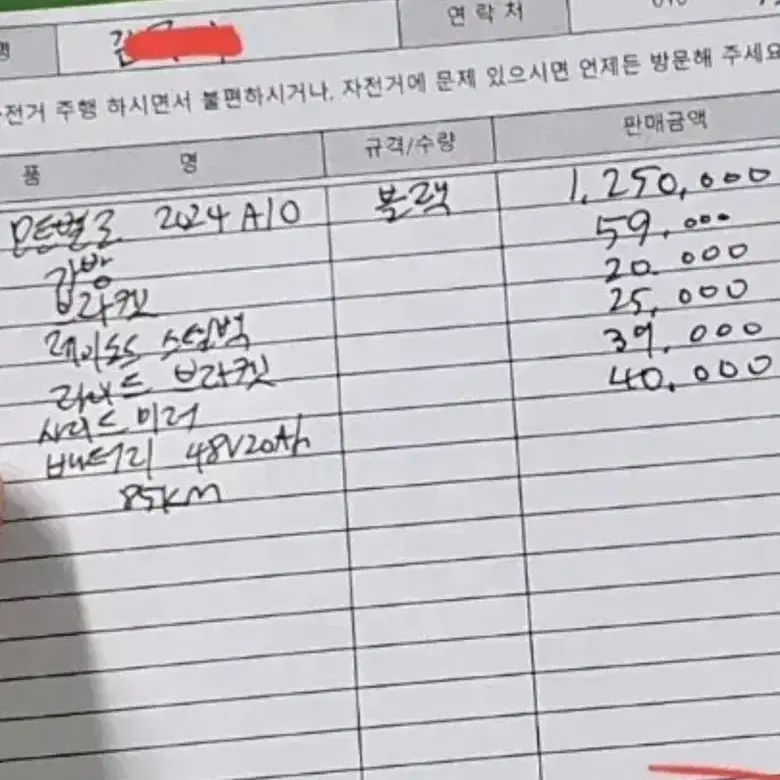 명 김 연 락 처 010
전거 주행 하시면서 불편하시거나, 자전거에 문제 있으시면 언제든 방문해 주세요
품 명 규격/수량 판매금액
모토벨로 2024 A10 블랙 1,250,000
가방 59,000
브라켓 20.000
레이노드 스텝벅 25,000
라이드 브라켓 39,000
사이드 미러 40,000
배터리 48V20Ah
85KM